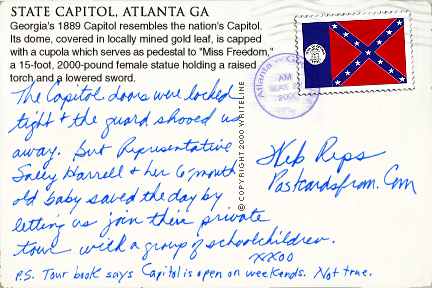 STATE CAPITOL, ATLANTA GA
Georgia's 1889 Capitol resembles the nation's Capitol.
Its dome, covered in locally mined gold leaf, is capped
with a cupola which serves as pedestal to "Miss Freedom,"
a 15-foot, 2000-pound female statue holding a raised
torch and a lowered sword.
The Capitol doors were locked
tight & the guard shooed us
away. But Representative
Sally Harrell & her 6-month
old baby saved the day by
letting us join their private
tour with a group of schoolchildren.
xxoo
P.S. Tour book says Capitol is open on weekends. Not true.
© COPYRIGHT 2000 WRITELINE
Atlanta GA
AM
Postcardsfrom.Com